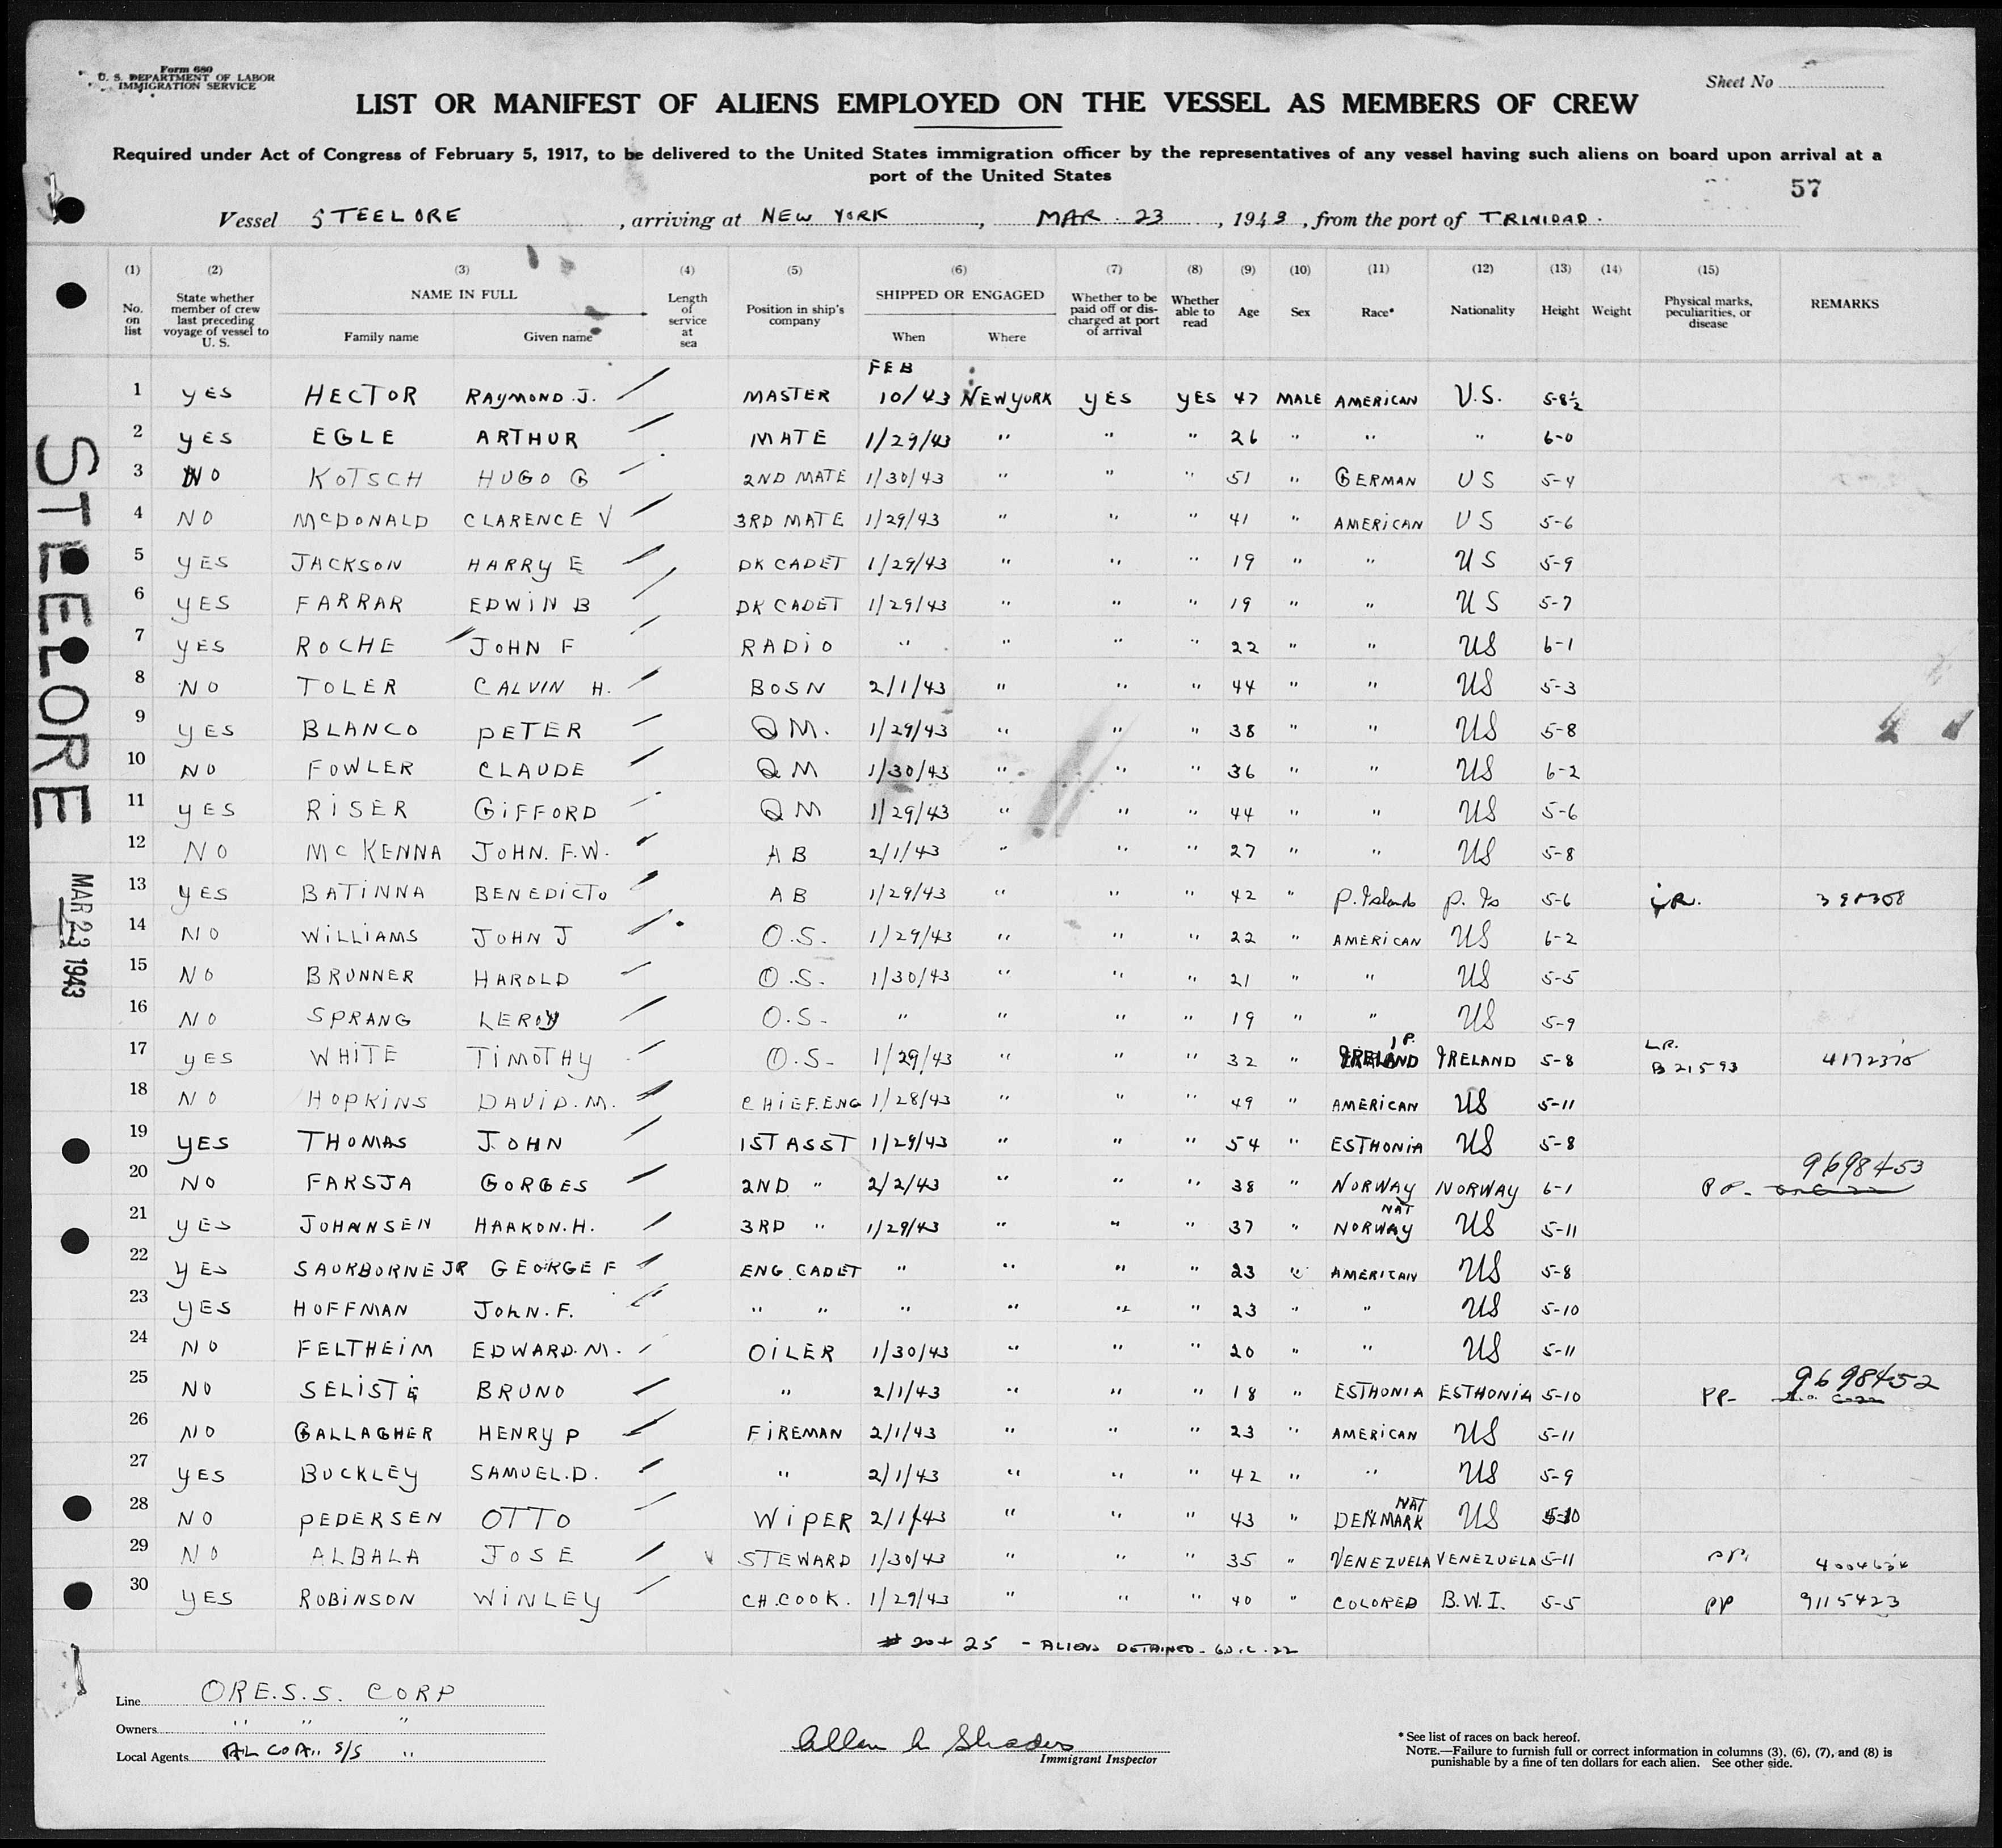 Form 680
U. S. DEPARTMENT OF LABOR
IMMIGRATION SERVICE
Sheet No
LIST OR MANIFEST OF ALIENS EMPLOYED ON THE VESSEL AS MEMBERS OF CREW
Required under Act of Congress of February 5, 1917, to be delivered to the United States immigration officer by the representatives of any vessel having such aliens on board upon arrival at a
port of the United States
57
Vessel STEELORE , arriving at NEW YORK , MAR. 23 , 1943 , from the port of TRINIDAD.
(1) (2) (3) (4) (5) (6) (7) (8) (9) (10) (11) (12) (13) (14) (15)
No. on list State whether member of crew last preceding voyage of vessel to U. S. NAME IN FULL Family name Given name Length of service at sea Position in ship's company SHIPPED OR ENGAGED When Where Whether to be paid off or discharged at port of arrival Whether able to read Age Sex Race* Nationality Height Weight Physical marks, peculiarities, or disease REMARKS
FEB
1 YES HECTOR RAYMOND.J. MASTER 10/43 NEWYORK YES YES 47 MALE AMERICAN U.S. 5-8½
2 YES EGLE ARTHUR MATE 1/29/43 " " " 26 " " " 6-0
3 NO KOTSCH HUGO G 2ND MATE 1/30/43 " " " 51 " GERMAN US 5-4
4 NO McDONALD CLARENCE V 3RD MATE 1/29/43 " " " 41 " AMERICAN US 5-6
5 YES JACKSON HARRY E DK CADET 1/29/43 " " " 19 " " US 5-9
6 YES FARRAR EDWIN B DK CADET 1/29/43 " " " 19 " " US 5-7
7 YES ROCHE JOHN F RADIO " " " " 22 " " US 6-1
8 NO TOLER CALVIN H. BOSN 2/1/43 " " " 44 " " US 5-3
9 YES BLANCO PETER QM. 1/29/43 " " " 38 " " US 5-8
10 NO FOWLER CLAUDE QM 1/30/43 " " " 36 " " US 6-2
11 YES RISER GIFFORD QM 1/29/43 " " " 44 " " US 5-6
12 NO Mc KENNA JOHN. F.W. AB 2/1/43 " " " 27 " " US 5-8
13 YES BATINNA BENEDICTO AB 1/29/43 " " " 42 " P. Islands P. Is 5-6
14 NO WILLIAMS JOHN J O.S. 1/29/43 " " " 22 " AMERICAN US 6-2
15 NO BRUNNER HAROLD O.S. 1/30/43 " " " 21 " " US 5-5
16 NO SPRANG LEROY O.S. " " " " 19 " " US 5-9
17 YES WHITE TIMOTHY O.S. 1/29/43 " " " 32 " IRELAND IRELAND 5-8 L.R. B 21593
18 NO HOPKINS DAVID.M. CHIEF.ENG 1/28/43 " " " 49 " AMERICAN US 5-11
19 YES THOMAS JOHN 1ST ASST 1/29/43 " " " 54 " ESTHONIA US 5-8
20 NO FARSJA GORGES 2ND " 2/2/43 " " " 38 " NORWAY NORWAY 6-1 PP- 9698453
21 YES JOHANSEN HAAKON.H. 3RD " 1/29/43 " " " 37 " NAT NORWAY US 5-11
22 YES SAURBORNE JR GEORGE F ENG. CADET " " " " 23 " AMERICAN US 5-8
23 YES HOFFMAN JOHN. F. " " " " " " 23 " " US 5-10
24 NO FELTHEIM EDWARD.M. OILER 1/30/43 " " " 20 " " US 5-11
25 NO SELISTE BRUNO " 2/1/43 " " " 18 " ESTHONIA ESTHONIA 5-10 PP- 9698452
26 NO GALLAGHER HENRY P FIREMAN 2/1/43 " " " 23 " AMERICAN US 5-11
27 YES BUCKLEY SAMUEL.D. " 2/1/43 " " " 42 " " US 5-9
28 NO PEDERSEN OTTO WIPER 2/1/43 " " " 43 " NAT DENMARK US 5-10
29 NO ALBALA JOSE STEWARD 1/30/43 " " " 35 " VENEZUELA VENEZUELA 5-11 PP.
30 YES ROBINSON WINLEY CH.COOK. 1/29/43 " " " 40 " COLORED B.W.I. 5-5 PP 9115423
# 20+ 25 - ALIENS DETAINED -
STEELORE
MAR 23 1943
Line ORE.S.S. CORP
Owners " " "
Local Agents ALCOA S/S "
Immigrant Inspector
* See list of races on back hereof.
NOTE.—Failure to furnish full or correct information in columns (3), (6), (7), and (8) is
punishable by a fine of ten dollars for each alien. See other side.